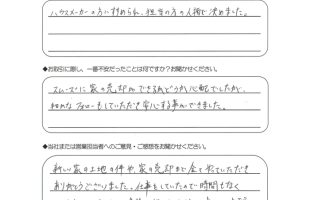 ハウスメーカーの方に勧められ、担当の方の人柄で決めました。
◆お取引に際し、一番不安だったことは何ですか？お聞かせください。
スムーズに家の売却ができるかどうか心配でしたが、
細めなフォローもしていただき安心する事ができました。
◆当社または営業担当者へのご意見・ご感想をお聞かせください。
新しい家の土地の件や、家の売却まで全て行っていただき
ありがとうございました。仕事もしていたので時間もなく